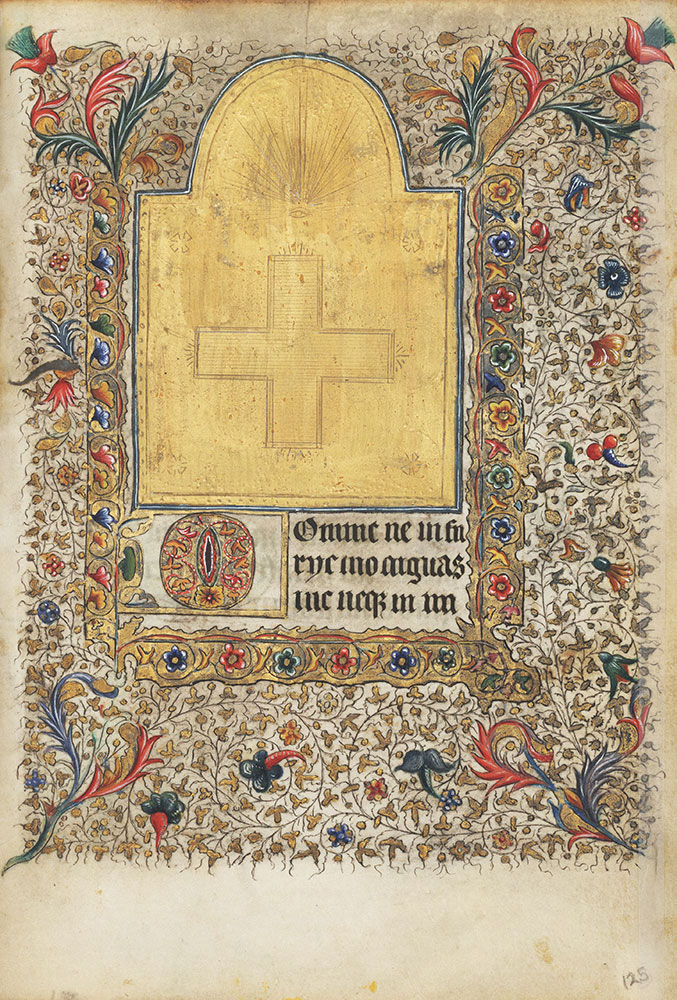 DOmine ne in fu
rore tuo arguas
me neqꝫ in ira
125